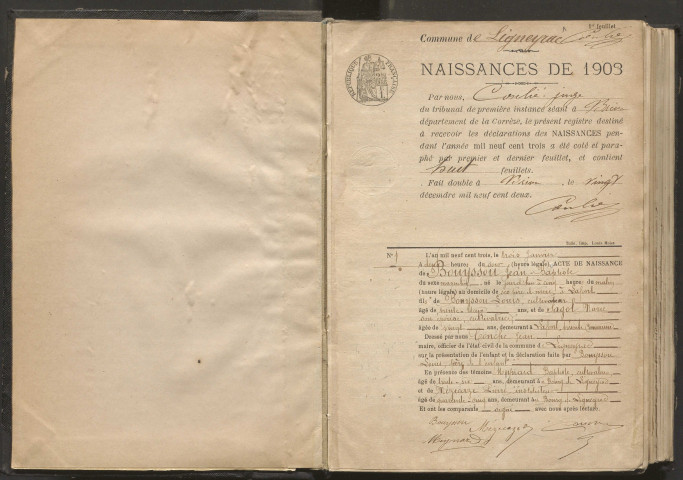 1er feuillet
Commune de Ligneyrac
RÉPUBLIQUE FRANÇAISE
NAISSANCES DE 1903
Par nous, juge
du tribunal de première instance séant à Brive
département de la Corrèze, le présent registre destiné
à recevoir les déclarations des NAISSANCES pen-
dant l'année mil neuf cent trois a été coté et para-
phé par premier et dernier feuillet, et contient
huit feuillets.
Fait double à Brive, le vingt
décembre mil neuf cent deux.
Tulle, Imp. Louis Moles
N° 1
L'an mil neuf cent trois, le trois Janvier
à heures du soir, (heure légale), ACTE DE NAISSANCE
de Bouyssou Jean Baptiste
du sexe masculin né le jourd'hui à cinq heures du matin
(heure légale) au domicile de ses père et mère, à
fils de Bouyssou Louis, cultivateur
âgé de trente ans, et de Marie
son épouse, cultivatrice
âgée de vingt ans, demeurant à commune
Dressé par nous Jean
maire, officier de l'état civil de la commune de Ligneyrac
sur la présentation de l'enfant et la déclaration faite par Bouyssou
Louis, père de l'enfant
En présence des témoins Meynard Baptiste, cultivateur
âgé de trente ans, demeurant au Bourg de Ligneyrac
et de instituteur
âgé de quarante cinq ans, demeurant au Bourg de Ligneyrac
Et ont les comparants signé avec nous après lecture.
Bouyssou
Meynard